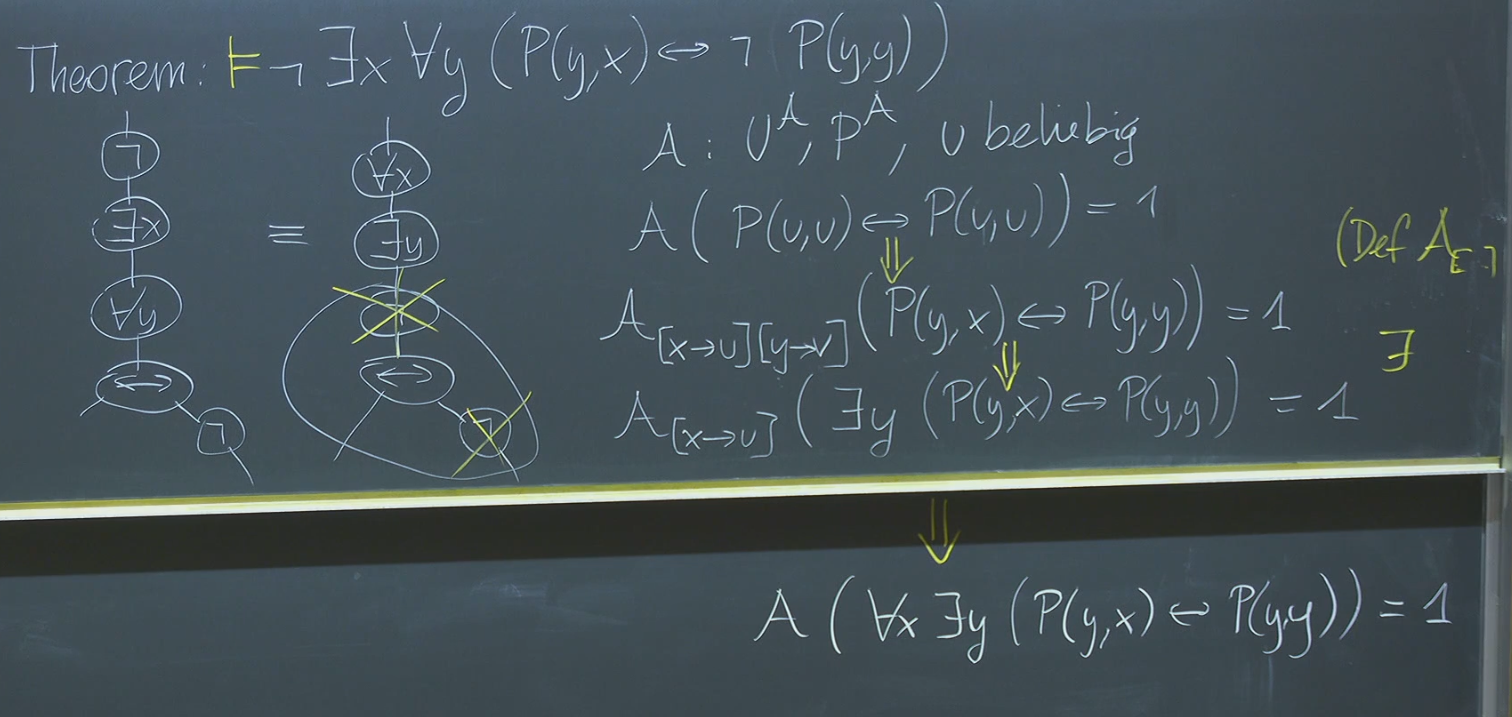 Theorem: ⊨ ¬ ∃x ∀y (P(y,x) ↔ ¬ P(y,y))
¬
∃x
∀y
↔
¬
≡
∀x
∃y
¬
↔
¬
A : U^A, P^A, u beliebig
A( P(u,u) ↔ P(u,u)) = 1
⇓
(Def A_[ ]
A_[x→u][y→u] (P(y,x) ↔ P(y,y)) = 1
⇓
∃
A_[x→u] (∃y (P(y,x) ↔ P(y,y)) = 1
⇓
A (∀x ∃y (P(y,x) ↔ P(y,y)) = 1